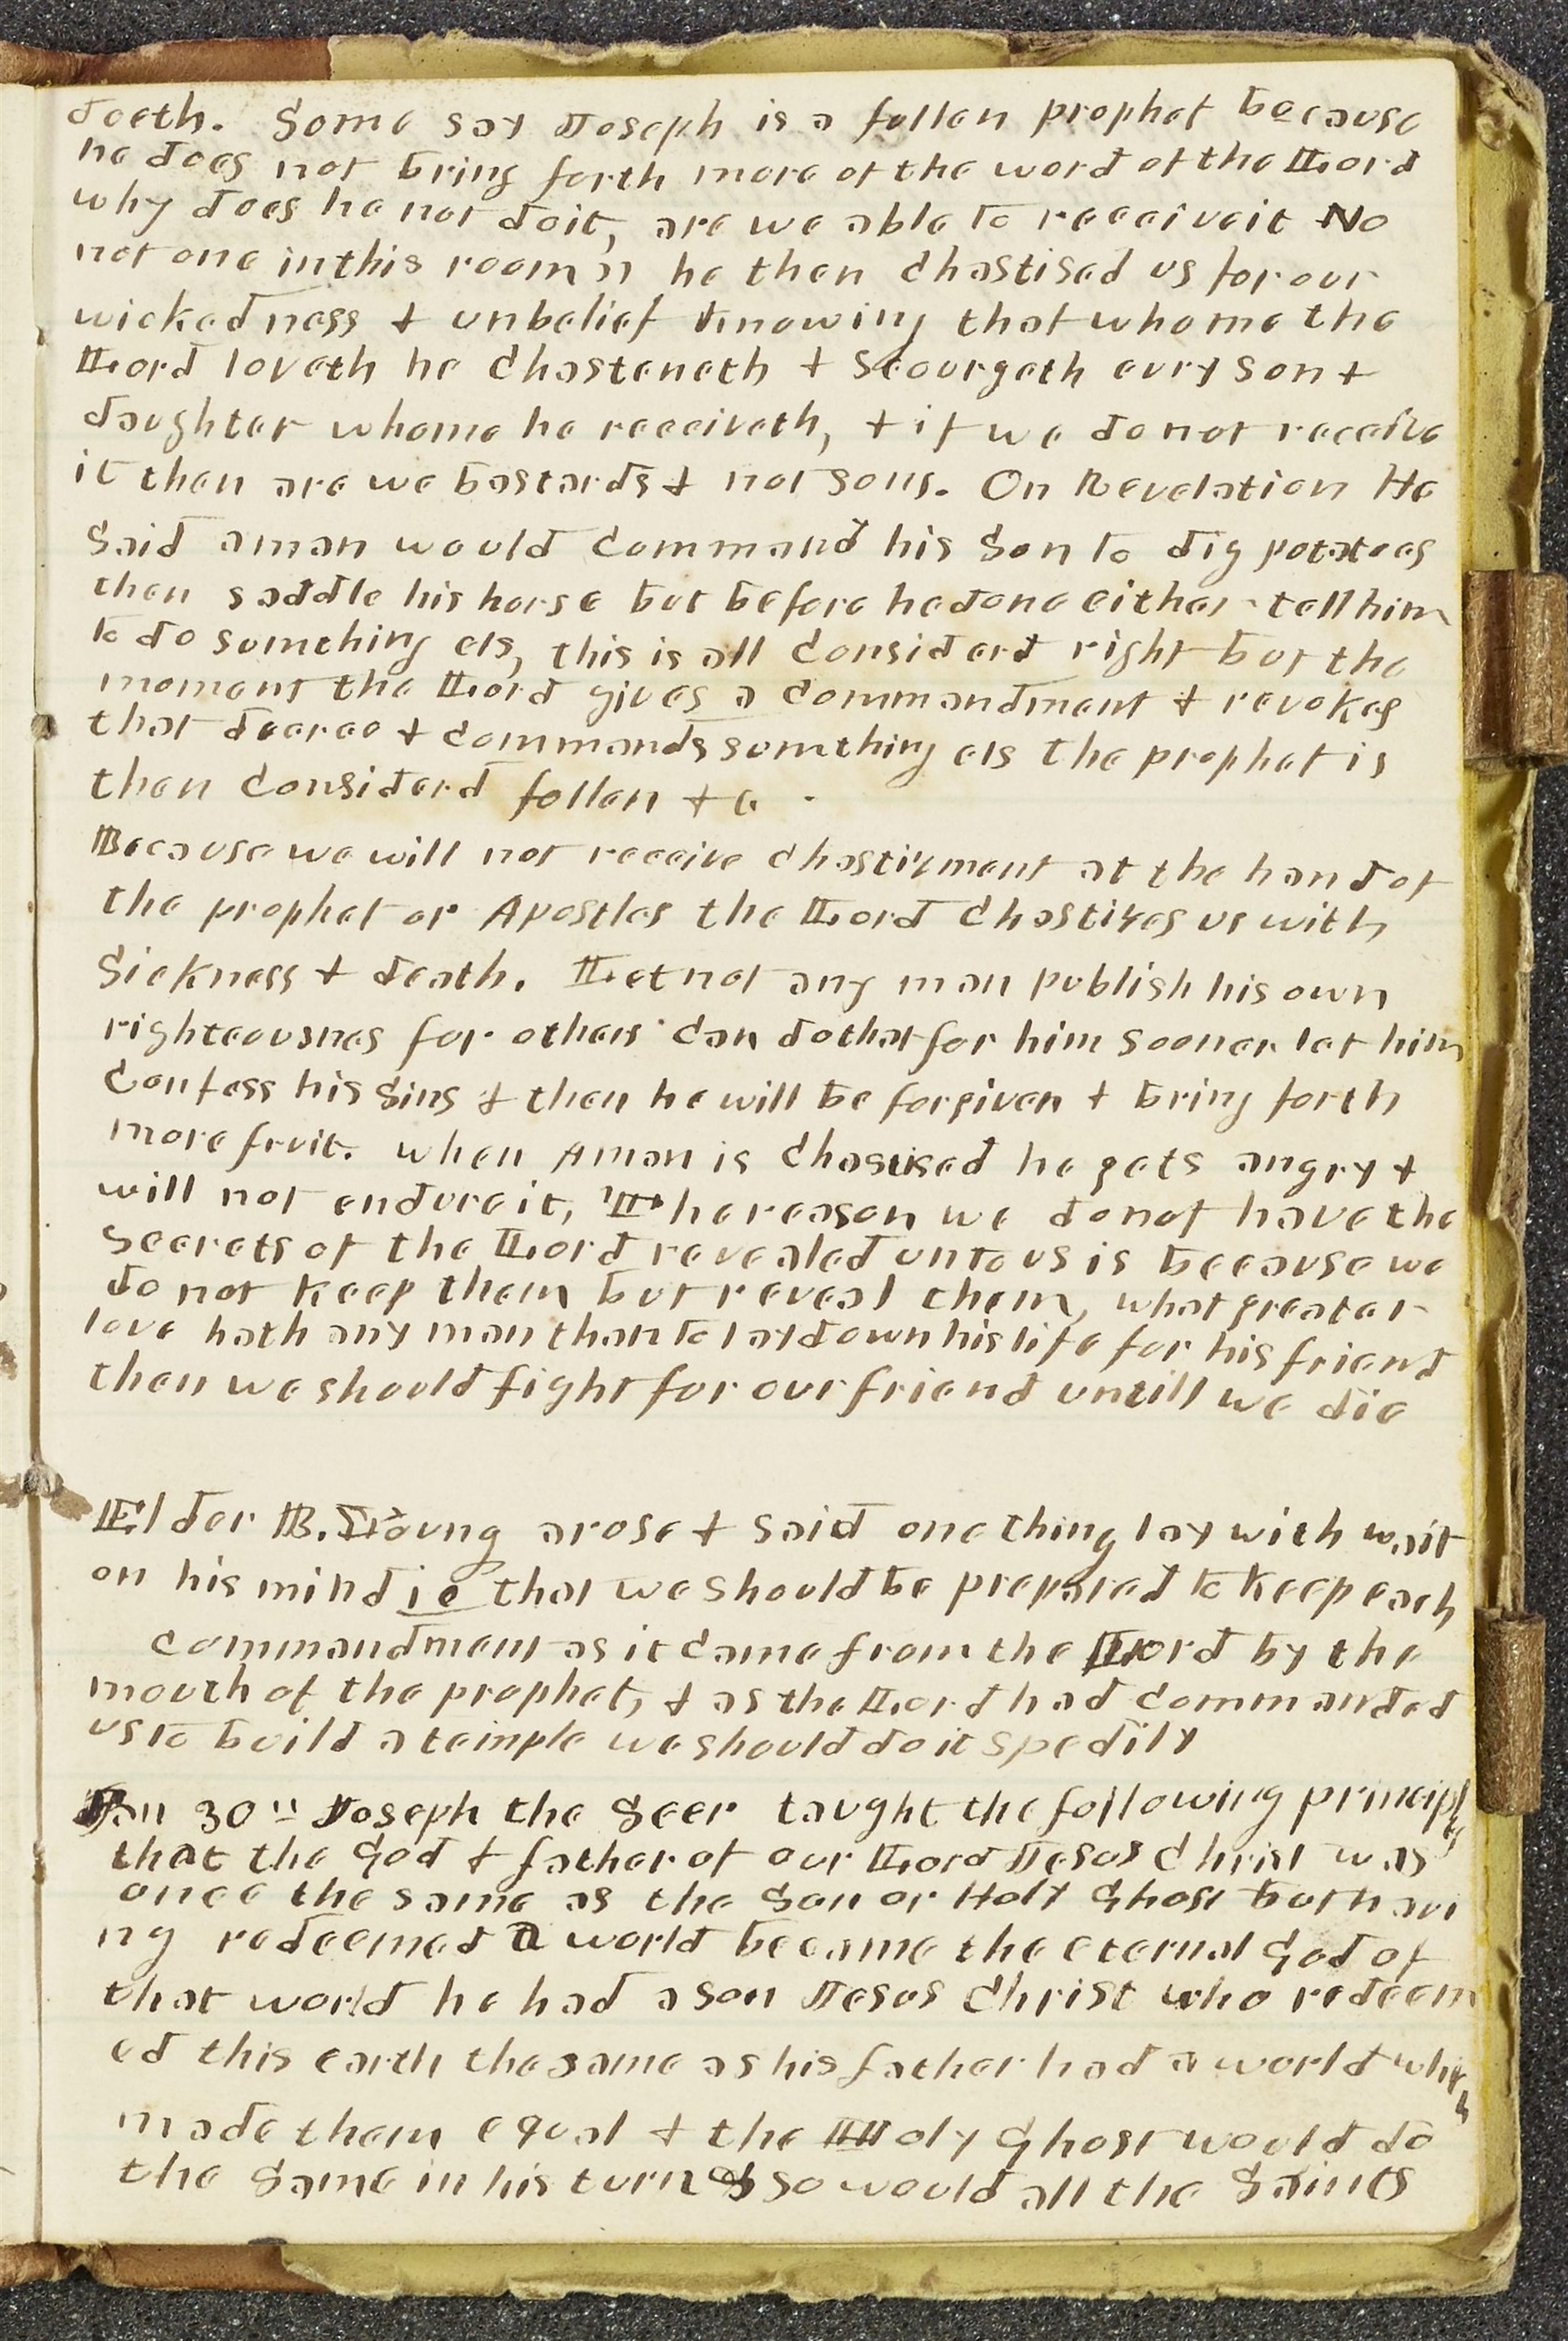 doeth. Some say Joseph is a fallen prophet because
he does not bring forth more of the word of the Lord
why does he not do it, are we able to receive it No
not one in this room " he then chastised us for our
wickedness & unbelief knowing that whome the
Lord loveth he chasteneth & Scourgeth evry Son &
daughter whome he receiveth, & if we do not receive
it then are we bastards & not sons. On Revelation He
Said a man would command his Son to dig potatoes
then saddle his horse but before he done either tell him
to do sumthing els, this is all considerd right but the
moment the Lord gives a commandment & revokes
that decree & commands sumthing els the prophet is
then considerd fallen &c.
Because we will not receive chastizment at the hand of
the prophet or Apostles the Lord chastizes us with
Sickness & death. Let not any man publish his own
righteousnes for others can do that for him sooner let him
confess his Sins & then he will be forgiven & bring forth
more fruit. when A man is chastised he gets angry &
will not endure it, The reason we do not have the
Secrets of the Lord revealed unto us is because we
do not keep them but reveal them, what greater
love hath any man than to lay down his life for his friend
then we should fight for our friend untill we die
Elder B. Young arose & said one thing lay with wait
on his mind ie that we should be prepared to keep each
commandment as it came from the Lord by the
mouth of the prophet, & as the Lord had commanded
us to build a temple we should do it spedily
Jan 30th Joseph the Seer taught the following principles
that the God & father of our Lord Jesus Christ was
once the same as the Son or Holy Ghost but havi
ng redeemed a world became the eternal God of
that world he had a son Jesus Christ who redeem
ed this earth the same as his father had a world which
made them equal & the Holy Ghost would do
the same in his turn & so would all the Saints